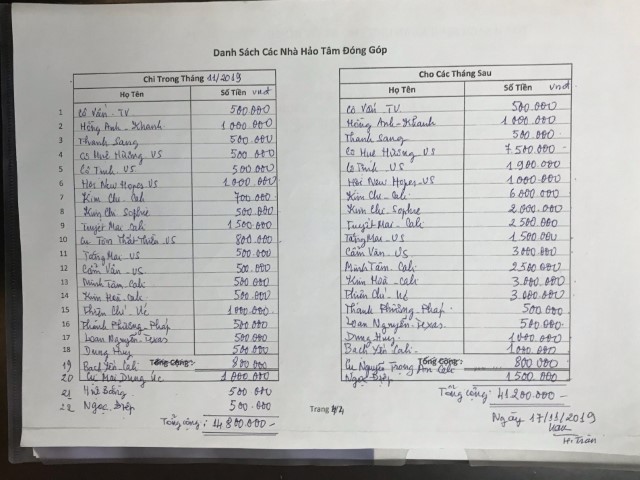 Danh Sách Các Nhà Hảo Tâm Đóng Góp
Chi Trong Tháng 11/2019
Họ Tên Số Tiền vnđ
1 Cô Vấn - TV 500.000
2 Hồng Anh - Khanh 1.000.000
3 Thanh Sang 500.000
4 Cô Huê Hương VS 500.000
5 Cô Trinh .US 500.000
6 Hội New Hopes US 1.000.000
7 Kim Chi - Cali 700.000
8 Kim Chi Sophie 500.000
9 Tuyết Mai Cali 1 500 000
10 Cu Tôn Thất Thiện US 800.000
11 Tường Mai - US 500.000
12 Cẩm Vân - US 500.000
13 Minh Tâm - Cali 500.000
14 Kim Hoà - Cali 500.000
15 Thiện Chí - Úc 1.000.000
16 Thánh Phương - Pháp 500 000
17 Loan Nguyễn - Texas 500.000
18 Dung Huy 500 000
Tổng Cộng
19 Bạch Yến Cali 800 000
20 Cu Mai Dung Úc 1.000.000
21 500.000
22 Ngọc Điệp 500.000
Tổng cộng: 14 800.000 -
Cho Các Tháng Sau
Họ Tên Số Tiền vnđ
Cô Vấn TV 500.000
Hồng Anh - Khanh 1.000.000
Thanh Sang 500.000
Cô Huê Hương VS 7.500.000
Cô Trinh - US 1 900 000
Hội New Hopes - US 1.000.000
Kim Chi - Cali 6.000.000
Kim Chi Sophie 2.000.000
Tuyết Mai - Cali 2 500 000
Tường Mai - US 1.500.000
Cẩm Vân - US 3.000.000
Minh Tâm - Cali 2 500 000
Kim Hoà - Cali 3.000.000
Thiện Chí - Úc 3.000.000
Thánh Phương - Pháp 500 000
Loan Nguyễn - Texas 500.000
Dung Huy 1.000.000
Bạch Yến Cali 1.000 000
Tổng Cộng
Cu Nguyễn Trọng An Cali 800 000
Ngọc Điệp 1.500 000
Tổng cộng: 41 200.000 -
Trang 4/4
Ngày 17/11/2019
H. Trần